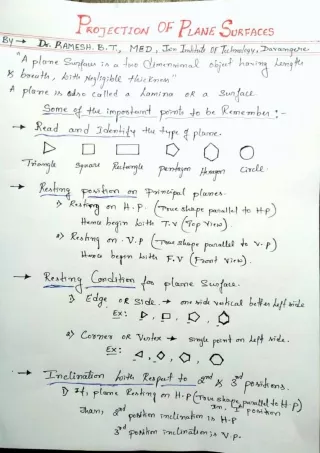 PROJECTION OF PLANE SURFACES
By → Dr. RAMESH. B. T, MED, Jain Institute of Technology, Davangere
"A plane Surface is a two dimensional object having Length
& breath, with negligible thickness"
A plane is also called a Lamina or a Surface.
Some of the important points to be Remember :-
→ Read and Identify the type of plane.
Triangle Square Rectangle pentagon Hexagon Circle.
→ Resting position on Principal planes.
1) Resting on H.P. (True shape parallel to H.P)
Hence begin with T.V (Top View).
2) Resting on .V.P (True shape parallel to V.P)
Hence begin with F.V (Front View).
→ Resting Condition for plane Surface.
1) Edge or Side. → one side vertical better left side
Ex:
2) Corner or Vertex → single point on left side.
Ex:
→ Inclination with Respect to 2nd & 3rd positions.
1) If, plane Resting on H.P (True shape parallel to H.P)
In, 1st position
Then, 2nd position inclination is H.P
3rd position inclination is V.P.